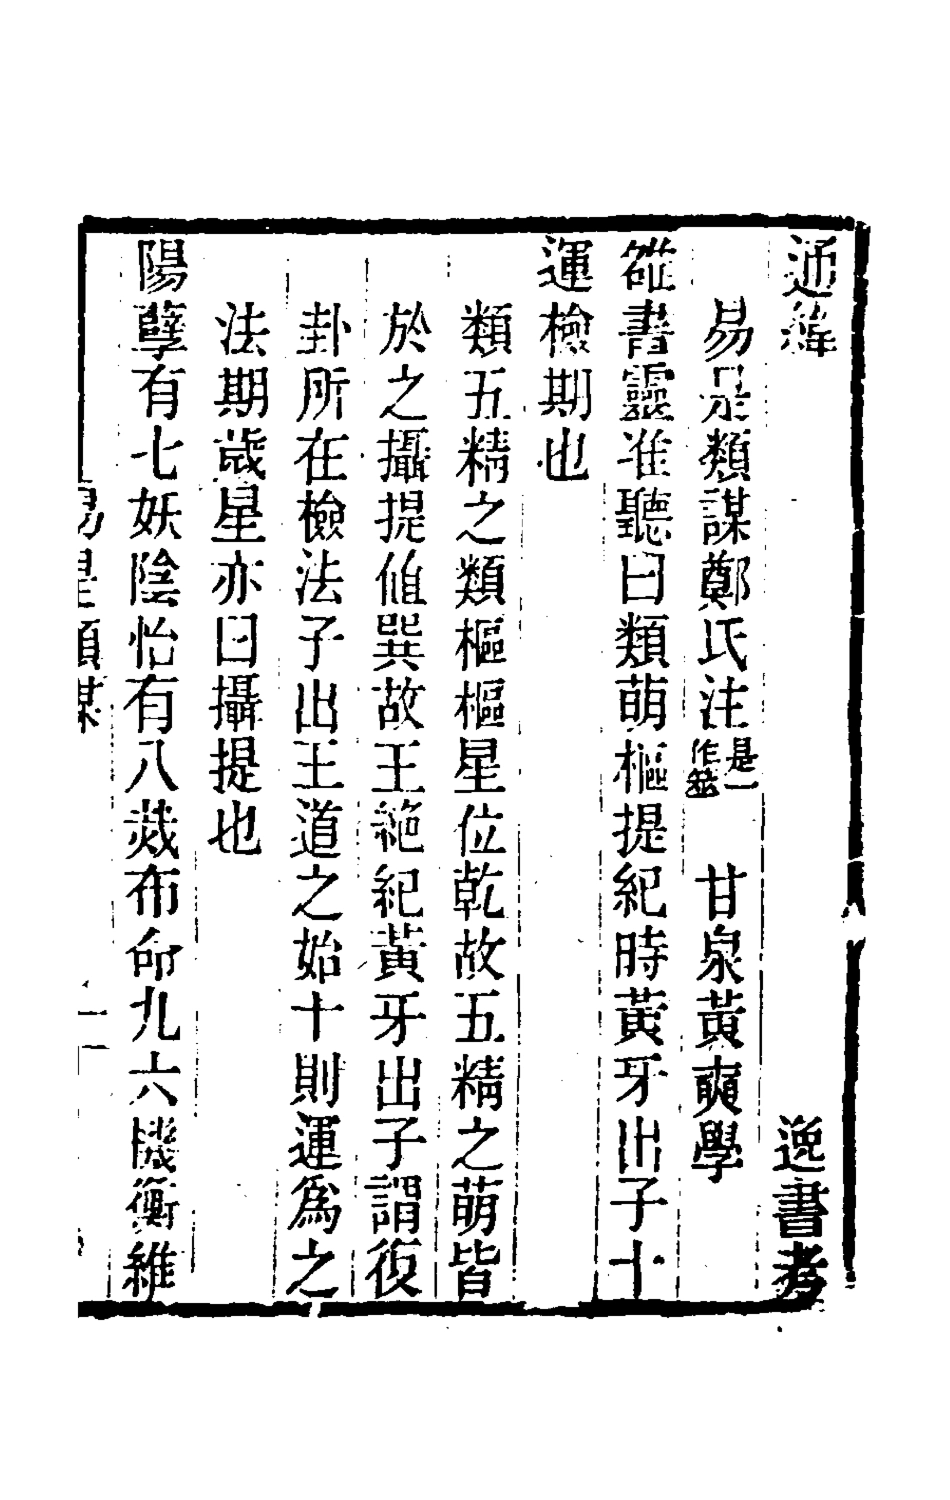 通緯 逸書考
易是類謀鄭氏注是一作筮 甘泉黃奭學
雒書靈准聽曰類萌樞提紀時黃牙出子十
運檢期也
類五精之類樞樞星位乾故五精之萌皆
於之攝提值巽故王絶紀黃牙出子謂復
卦所在檢法子出王道之始十則運爲之
法期歲星亦曰攝提也
陽孽有七妖陰怡有八烖布命九六機衡維
易是類謀 一